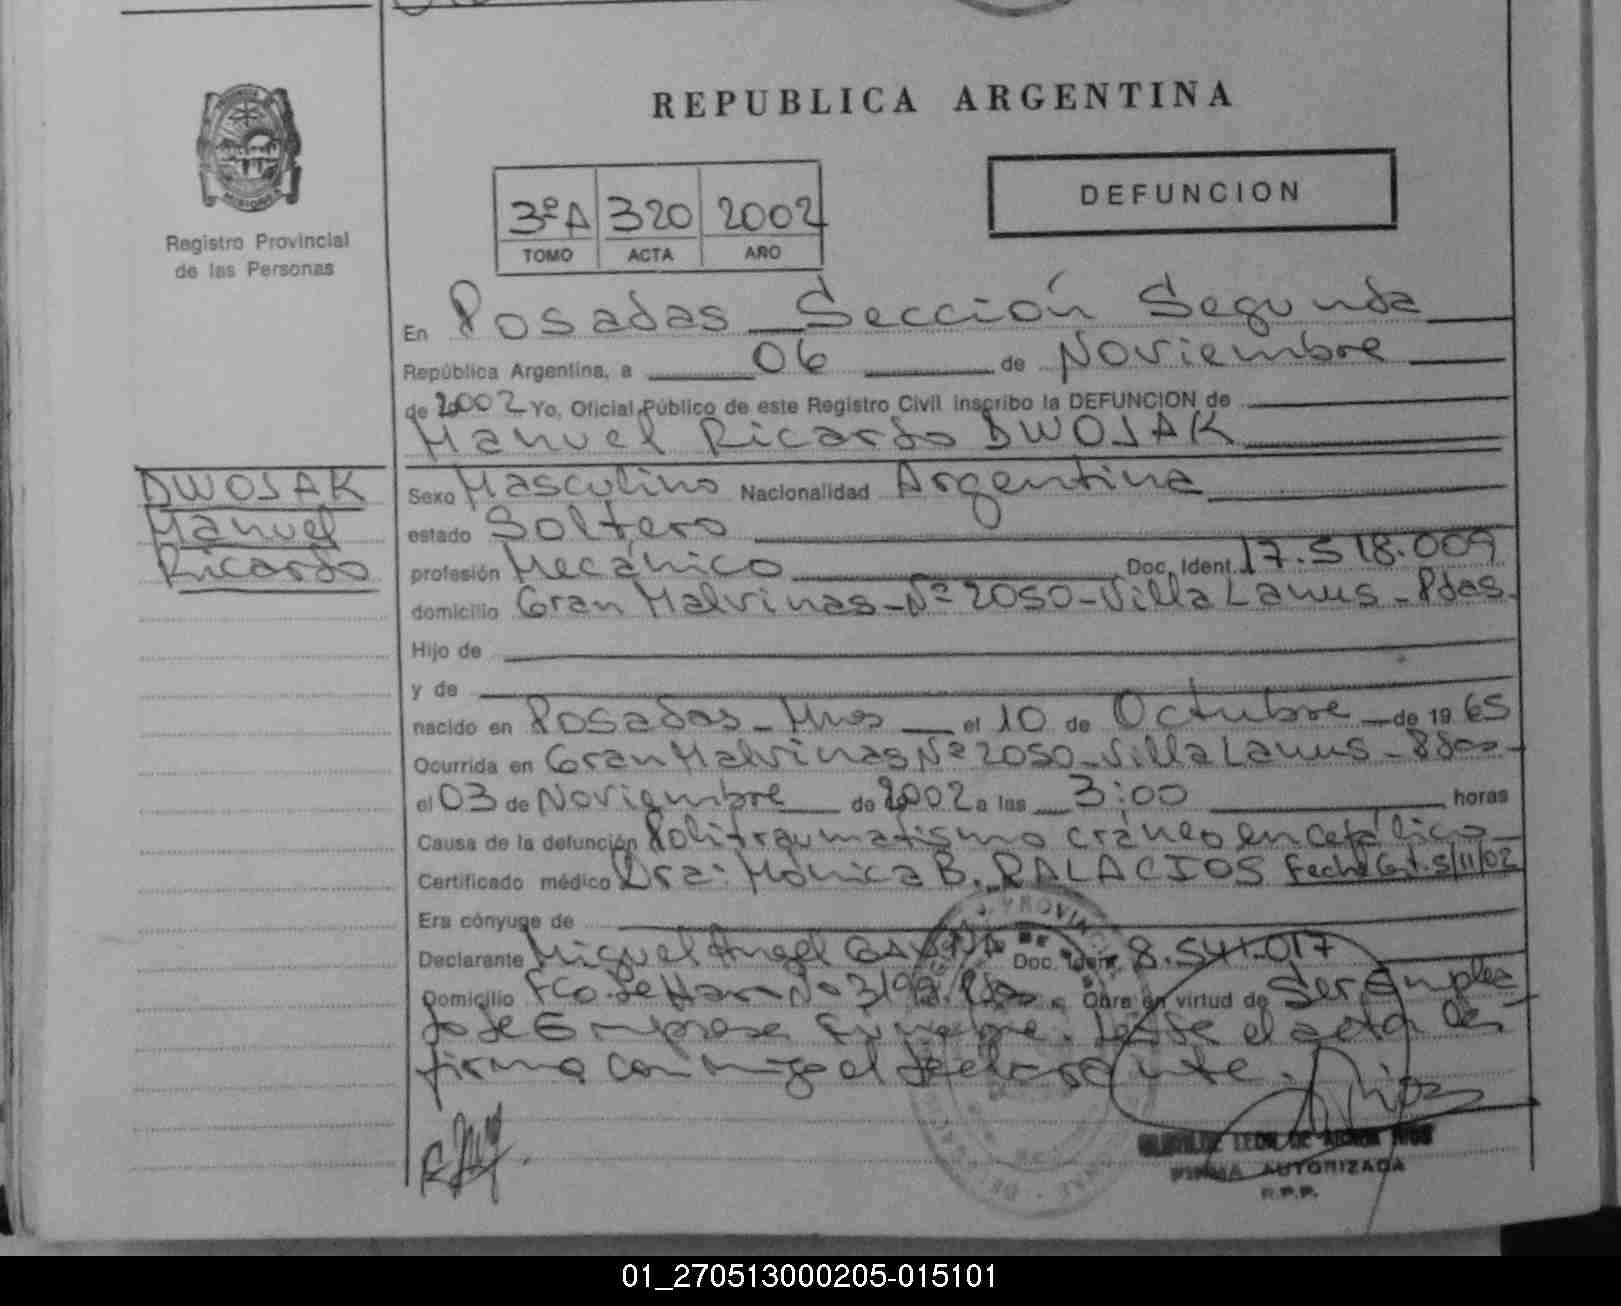 REPUBLICA ARGENTINA
DEFUNCION
3ºA 320 2002
TOMO ACTA AÑO
Registro Provincial
de las Personas
En Posadas Sección Segunda
República Argentina, a 06 de Noviembre
de 2002 Yo, Oficial Público de este Registro Civil inscribo la DEFUNCION de
Manuel Ricardo DWOJAK
DWOJAK
Manuel
Ricardo
Sexo Masculino Nacionalidad Argentina
estado Soltero
profesión Mecánico Doc. Ident. 17.518.009
domicilio Gran Malvinas - Nº 2050 - Villa Lanus - Pdas.
Hijo de
y de
nacido en Posadas - Mnes el 10 de Octubre de 1965
Ocurrida en Gran Malvinas Nº 2050 - Villa Lanus - Pdas -
el 03 de Noviembre de 2002 a las 3:00 horas
Causa de la defunción Politraumatismo cráneo encefálico
Certificado médico Dra: Mónica B. PALACIOS Fecha Cert. 5/11/02
Era cónyuge de
Declarante Miguel Angel Doc. Ident. 8.541.017
Domicilio Fco. de Haro Nº Pdas. Obra en virtud de Ser Emplea
do de Empresa Funebre. Leida el acta la
firma conmigo el declarante.
FIRMA AUTORIZADA
R.P.P.
01_270513000205-015101